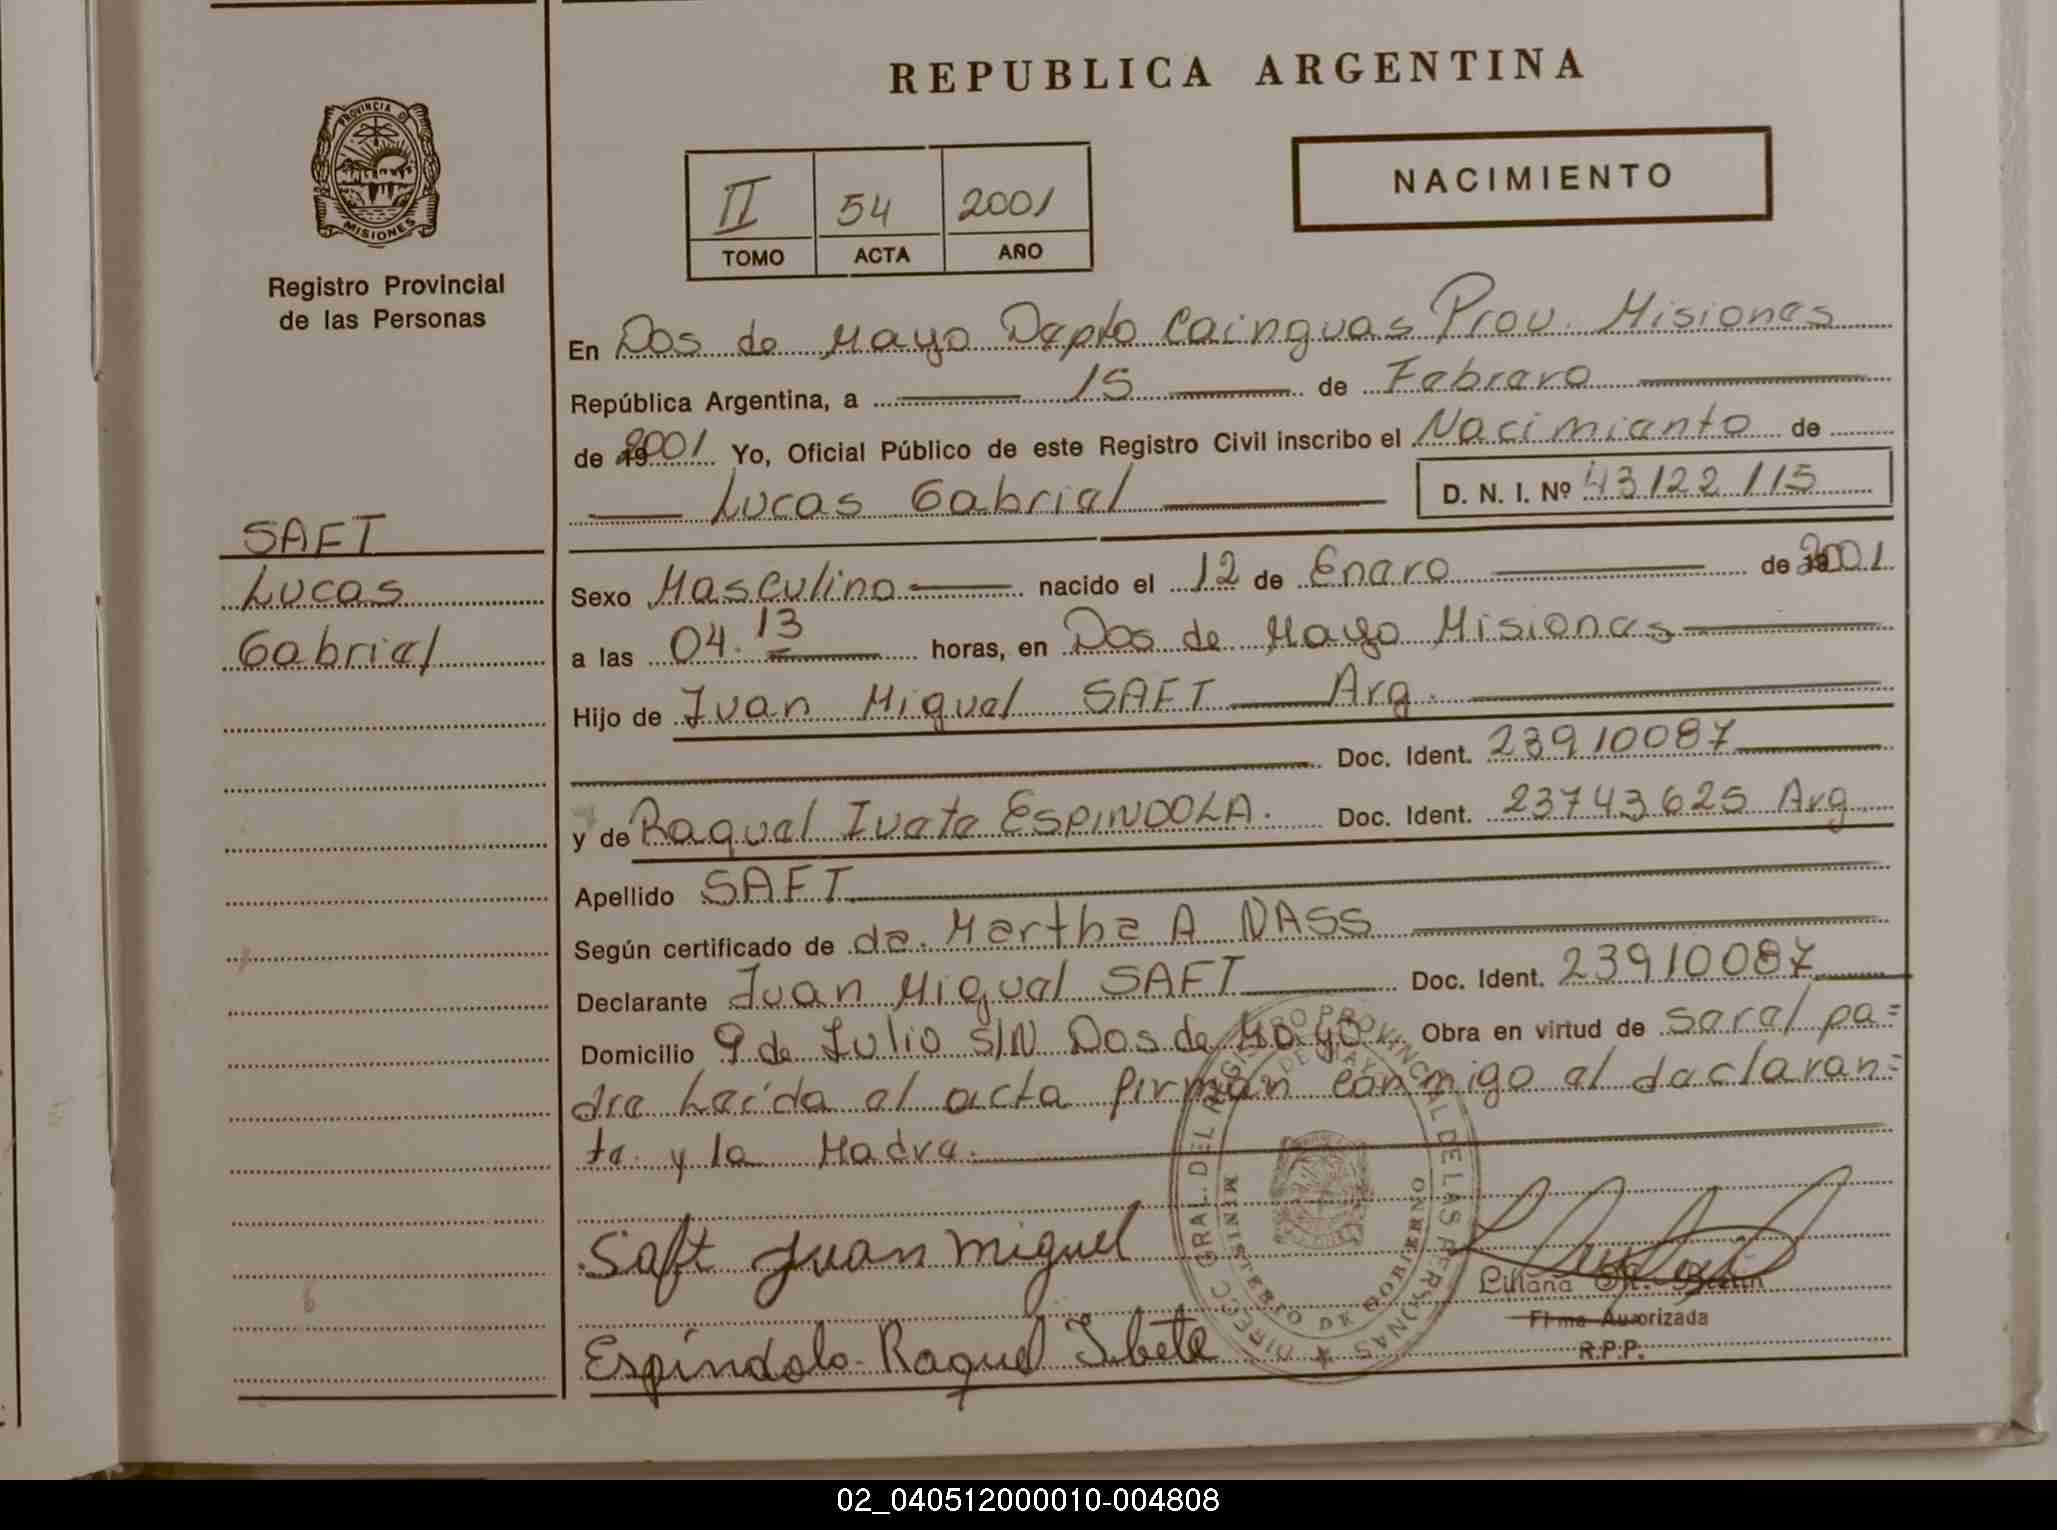 REPUBLICA ARGENTINA
PROVINCIA DE
MISIONES
Registro Provincial
de las Personas
II 54 2001
TOMO ACTA AÑO
NACIMIENTO
SAFT
Lucas
Gabriel
En Dos de Mayo Depto Cainguas Prov. Misiones
República Argentina, a 15 de Febrero
de 2001 Yo, Oficial Público de este Registro Civil inscribo el Nacimiento de
Lucas Gabriel D. N. I. Nº 43122115
Sexo Masculino nacido el 12 de Enero de 2001
a las 04.13 horas, en Dos de Mayo Misiones
Hijo de Juan Miguel SAFT Arg.
Doc. Ident. 23910087
y de Raquel Ivete ESPINDOLA. Doc. Ident. 23743625 Arg
Apellido SAFT
Según certificado de da. Martha A NASS
Declarante Juan Miguel SAFT Doc. Ident. 23910087
Domicilio 9 de Julio S/N Dos de Mayo Obra en virtud de ser el pa=
dre Leída el acta firman conmigo el declaran=
te y la Madre.
Saft Juan Miguel
Espíndola Raquel Ibete
DIRECC GRAL. DEL REGISTRO PROVINCIAL DE LAS PERSONAS
DOS DE MAYO
MINISTERIO DE GOBIERNO
Liliana
Firma Autorizada
R.P.P.
02_040512000010-004808